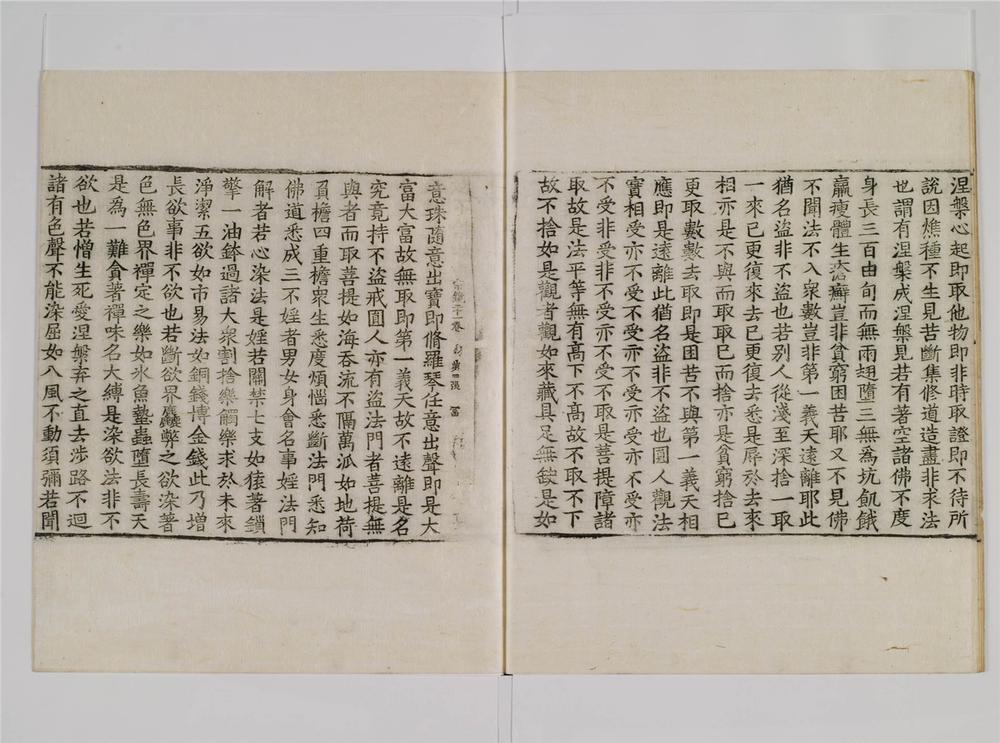 涅槃心起即取他物即非時取證即不待所
說因燋種不生見苦斷集修道造盡非求法
也謂有涅槃成涅槃見若有著空諸佛不度
身長三百由旬而無兩翅墮三無為坑飢餓
羸瘦體生瘡癬豈非貧窮困苦耶又不見佛
不聞法不入衆數豈非第一義天遠離耶此
猶名盜非不盜也若別人從淺至深捨一取
一來已更復來去已更復去悉是辱於去來
相亦是不與而取取已而捨亦是貧窮捨已
更取數數去取即是困苦不與第一義天相
應即是遠離此猶名盜非不盜也圓人觀法
實相受亦不受不受亦不受亦受亦不受亦
不受非受非不受亦不受不取是菩提障諸
取故是法平等無有高下不高故不取不下
故不捨如是觀者觀如來藏具足無缺是如
意珠隨意出寶即脩羅琴任意出聲即是大
富大富故無取即第一義天故不遠離是名
究竟持不盜戒圓人亦有盜法門者菩提無
與者而取菩提如海吞流不隔萬派如地荷
負檐四重檐衆生悉度煩惱悉斷法門悉知
佛道悉成三不婬者男女身會名事婬法門
解者若心染法是婬若關禁七支如猿著鎖
擎一油鉢過諸大衆割捨樂觸樂求於未來
淨潔五欲如市易法如銅錢博金錢此乃增
長欲事非不欲也若斷欲界麤弊之欲染著
色無色界禪定之樂如氷魚蟄蟲墮長壽天
是為一難貪著禪味名大縛是染欲法非不
欲也若憎生死愛涅槃弃之直去涉路不迴
諸有色聲不能染屈如八風不動須彌若聞